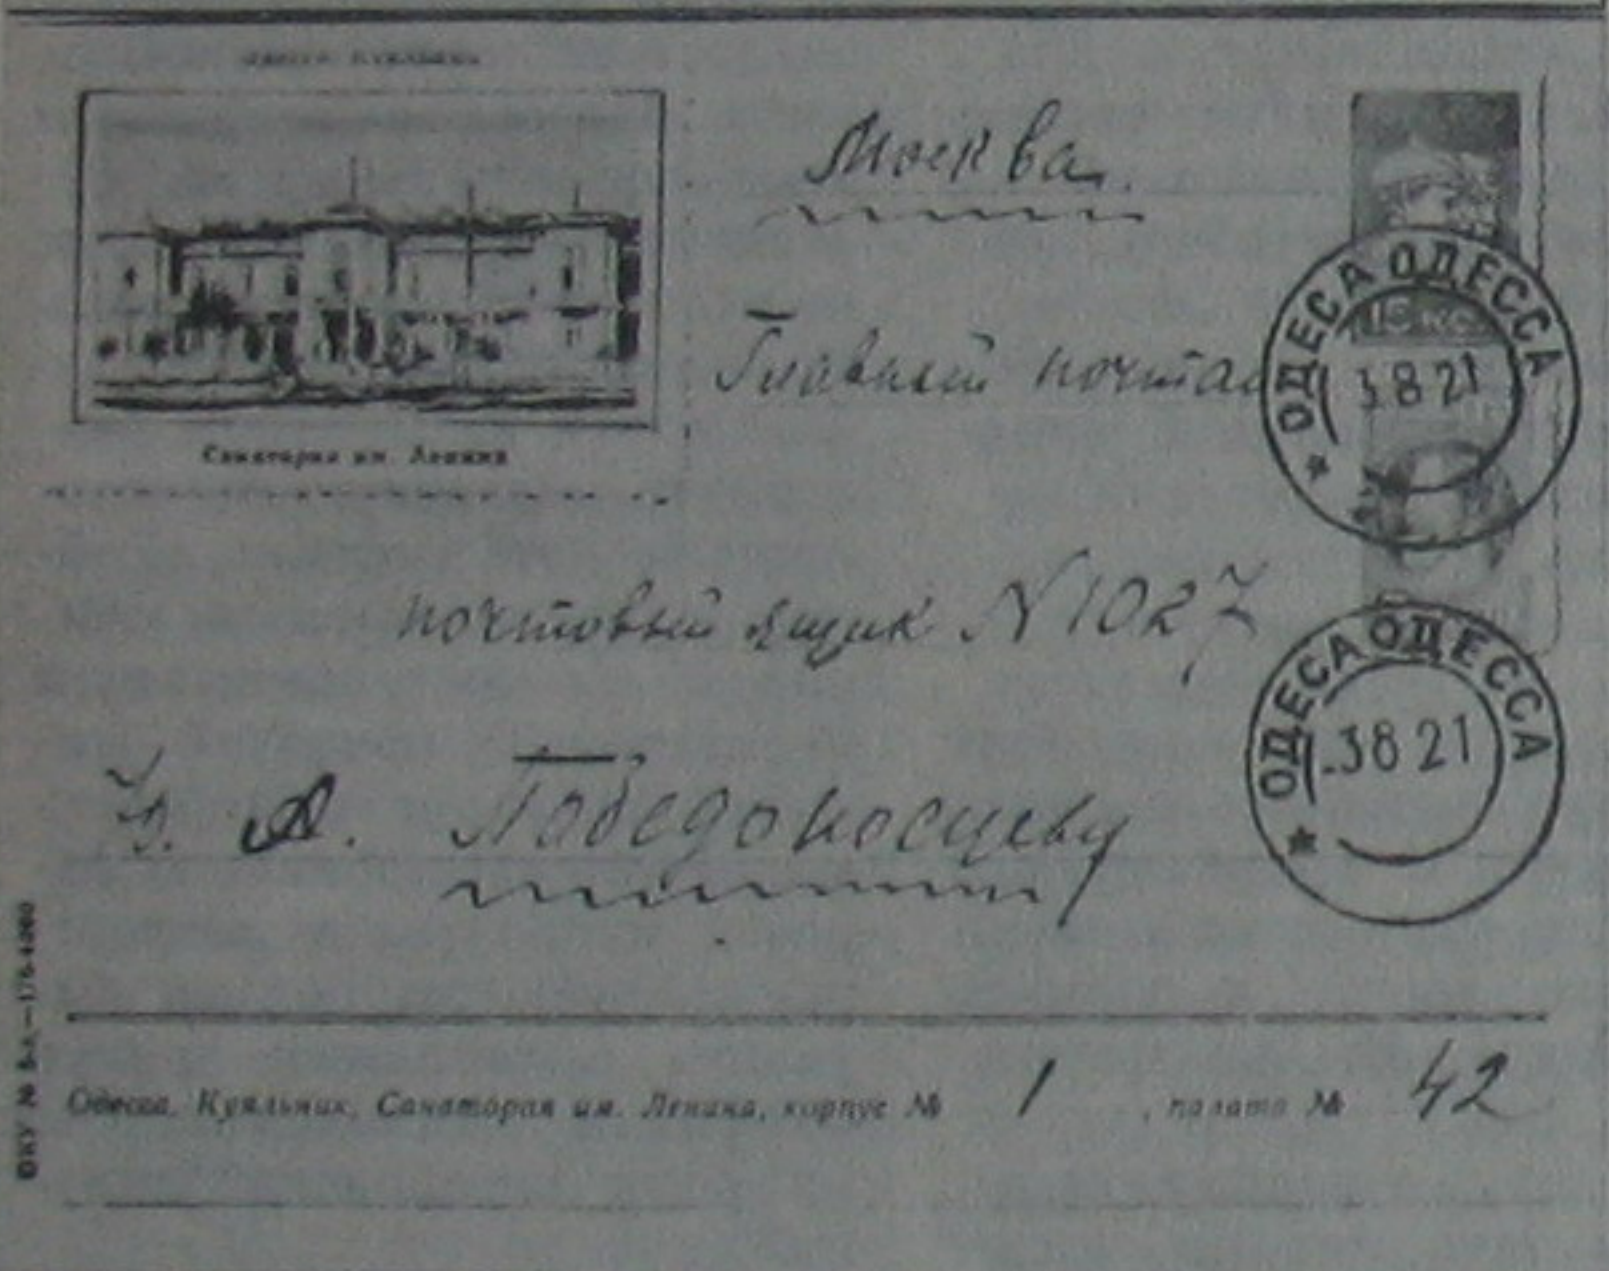 Одесса. Куяльник
Санатория им. Ленина
Москва.
Главный почта
почтовый ящик N 1027
А. Победоносцеву
ОДЕСА ОДЕССА
3.8 21
15 к
ОДЕСА ОДЕССА
-3 8 21
Одесса, Куяльник, Санатория им. Ленина, корпус № 1, палата № 42